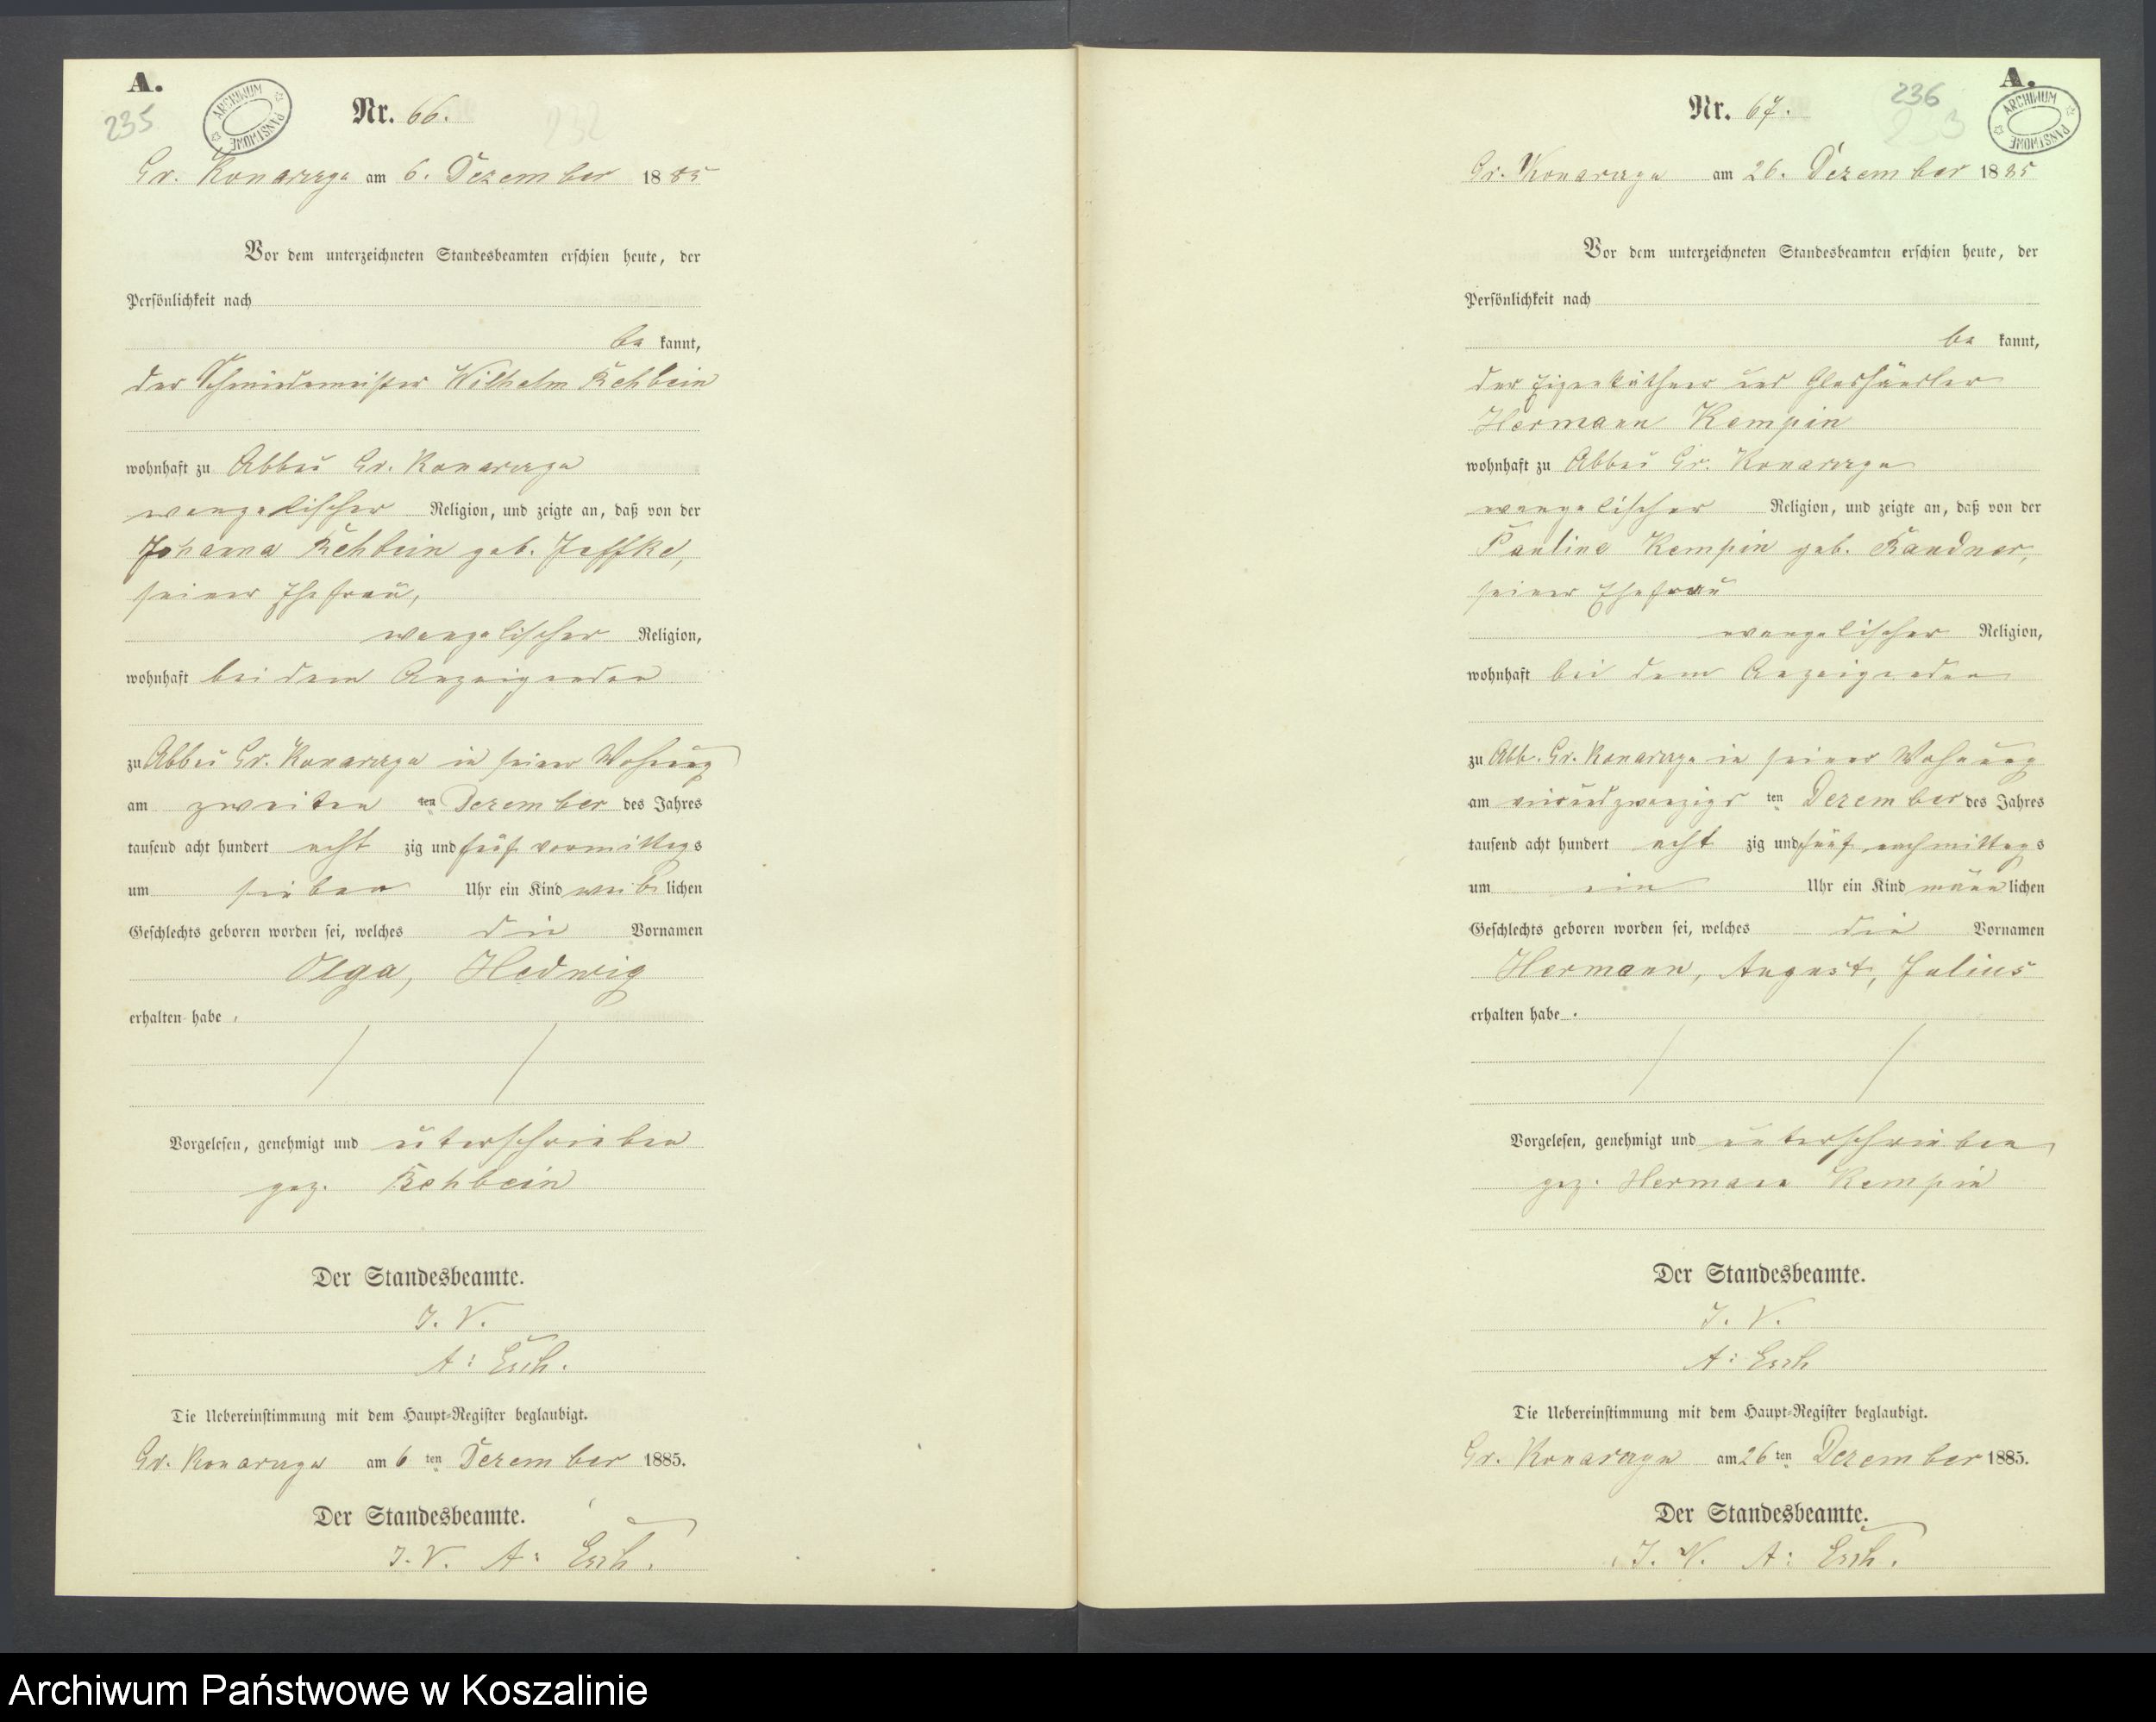 A.
235
ARCHIWUM PAŃSTWOWE
232
Nr. 66.
Gr. Konarzyn am 6. Dezember 1885
Vor dem unterzeichneten Standesbeamten erschien heute, der
Persönlichkeit nach
be kannt,
der Schmiedemeister Wilhelm Rehbein
wohnhaft zu Abbau Gr. Konarzyn
evangelischer Religion, und zeigte an, daß von der
Johanna Rehbein geb. Jeffke,
seiner Ehefrau,
evangelischer Religion,
wohnhaft bei dem Anzeigenden
zu Abbau Gr. Konarzyn in seiner Wohnung
am zweiten ten Dezember des Jahres
tausend acht hundert acht zig und fünf vormittags
um sieben Uhr ein Kind weib lichen
Geschlechts geboren worden sei, welches die Vornamen
Olga, Hedwig
erhalten habe.
Vorgelesen, genehmigt und unterschrieben
gez. Rehbein
Der Standesbeamte.
J. V.
A: Esch.
Die Uebereinstimmung mit dem Haupt-Register beglaubigt.
Gr. Konarzyn am 6 ten Dezember 1885.
Der Standesbeamte.
J. V. A: Esch.
A.
236
ARCHIWUM PAŃSTWOWE
Nr. 67.
Gr. Konarzyn am 26. Dezember 1885
Vor dem unterzeichneten Standesbeamten erschien heute, der
Persönlichkeit nach
be kannt,
der Eigenkäthner und Glashändler
Hermann Kempin
wohnhaft zu Abbau Gr. Konarzyn
evangelischer Religion, und zeigte an, daß von der
Pauline Kempin geb. Bandner,
seiner Ehefrau
evangelischer Religion,
wohnhaft bei dem Anzeigenden
zu Abb. Gr. Konarzyn in seiner Wohnung
am vierundzwanzigs ten Dezember des Jahres
tausend acht hundert acht zig und fünf nachmittags
um ein Uhr ein Kind männ lichen
Geschlechts geboren worden sei, welches die Vornamen
Hermann, August, Julius
erhalten habe.
Vorgelesen, genehmigt und unterschrieben
gez. Hermann Kempin
Der Standesbeamte.
J. V.
A: Esch
Die Uebereinstimmung mit dem Haupt-Register beglaubigt.
Gr. Konarzyn am 26 ten Dezember 1885.
Der Standesbeamte.
J. V. A: Esch.
Archiwum Państwowe w Koszalinie